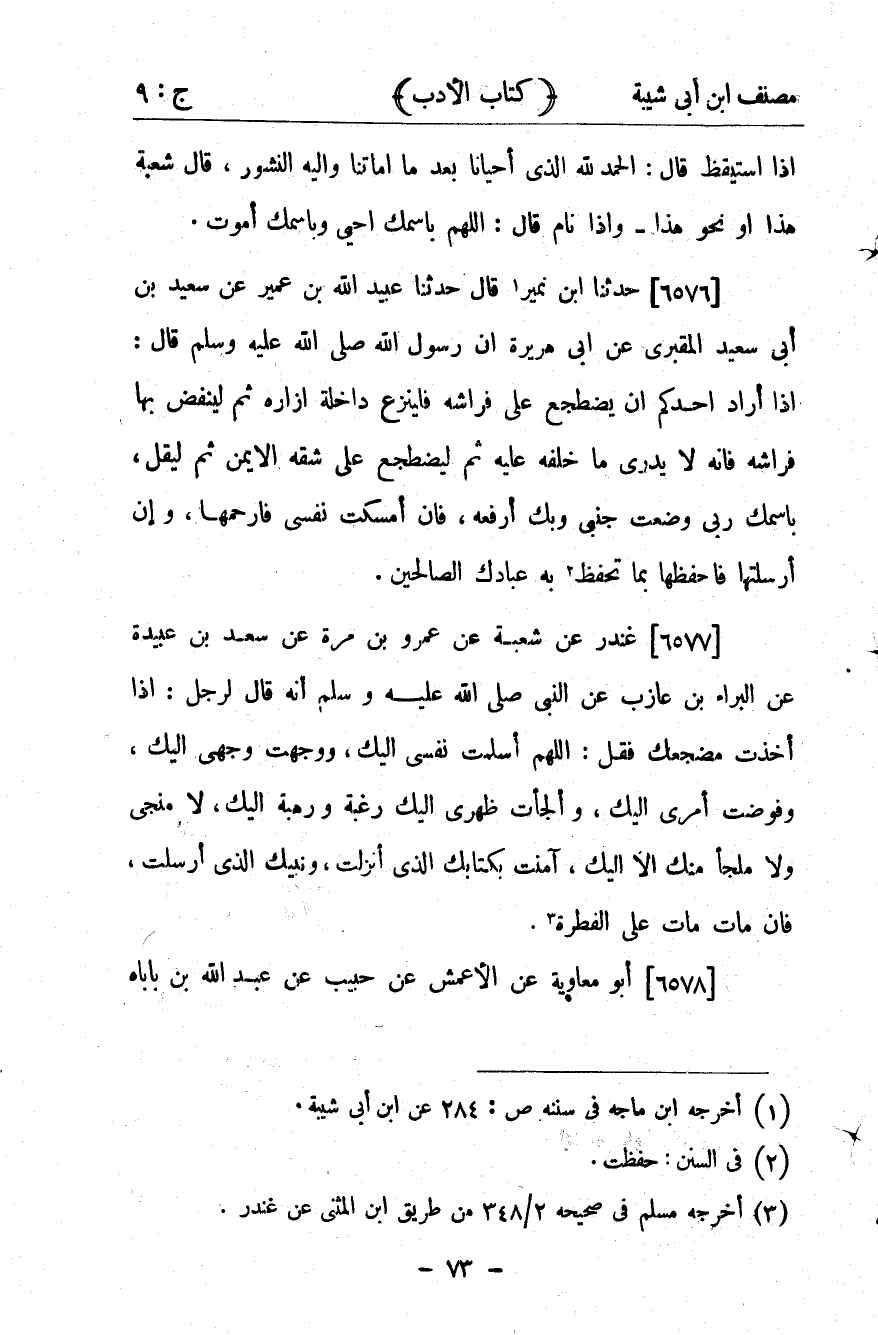 مصنف ابن أبى شيبة ﴿ كتاب الأدب ﴾ ج : ٩
اذا استيقظ قال : الحمد لله الذى أحيانا بعد ما اماتنا واليه النشور ، قال شعبة
هذا او نحو هذا ـ واذا نام قال : اللهم باسمك احيى وباسمك أموت .
[٦٥٧٦] حدثنا ابن نمير١ قال حدثنا عبيد الله بن عمير عن سعيد بن
أبى سعيد المقبرى عن ابى هريرة ان رسول الله صلى الله عليه وسلم قال :
اذا أراد احدكم ان يضطجع على فراشه فلينزع داخلة ازاره ثم لينفض بها
فراشه فانه لا يدرى ما خلفه عليه ثم ليضطجع على شقه الايمن ثم ليقل ،
باسمك ربى وضعت جنبى وبك أرفعه ، فان أمسكت نفسى فارحمها ، و إن
أرسلتها فاحفظها بما تحفظ٢ به عبادك الصالحين .
[٦٥٧٧] غندر عن شعبة عن عمرو بن مرة عن سعد بن عبيدة
عن البراء بن عازب عن النبى صلى الله عليه و سلم أنه قال لرجل : اذا
أخذت مضجعك فقل : اللهم أسلمت نفسى اليك ، ووجهت وجهى اليك ،
وفوضت أمرى اليك ، و ألجأت ظهرى اليك رغبة و رهبة اليك ، لا منجى
ولا ملجأ منك الا اليك ، آمنت بكتابك الذى أنزلت ، ونبيك الذى أرسلت ،
فان مات مات على الفطرة٣ .
[٦٥٧٨] أبو معاوية عن الأعمش عن حبيب عن عبد الله بن باباه
(١) أخرجه ابن ماجه فى سننه ص : ٢٨٤ عن ابن أبى شيبة .
(٢) فى السنن : حفظت .
(٣) أخرجه مسلم فى صحيحه ٣٤٨/٢ من طريق ابن المثنى عن غندر .
– ٧٣ –